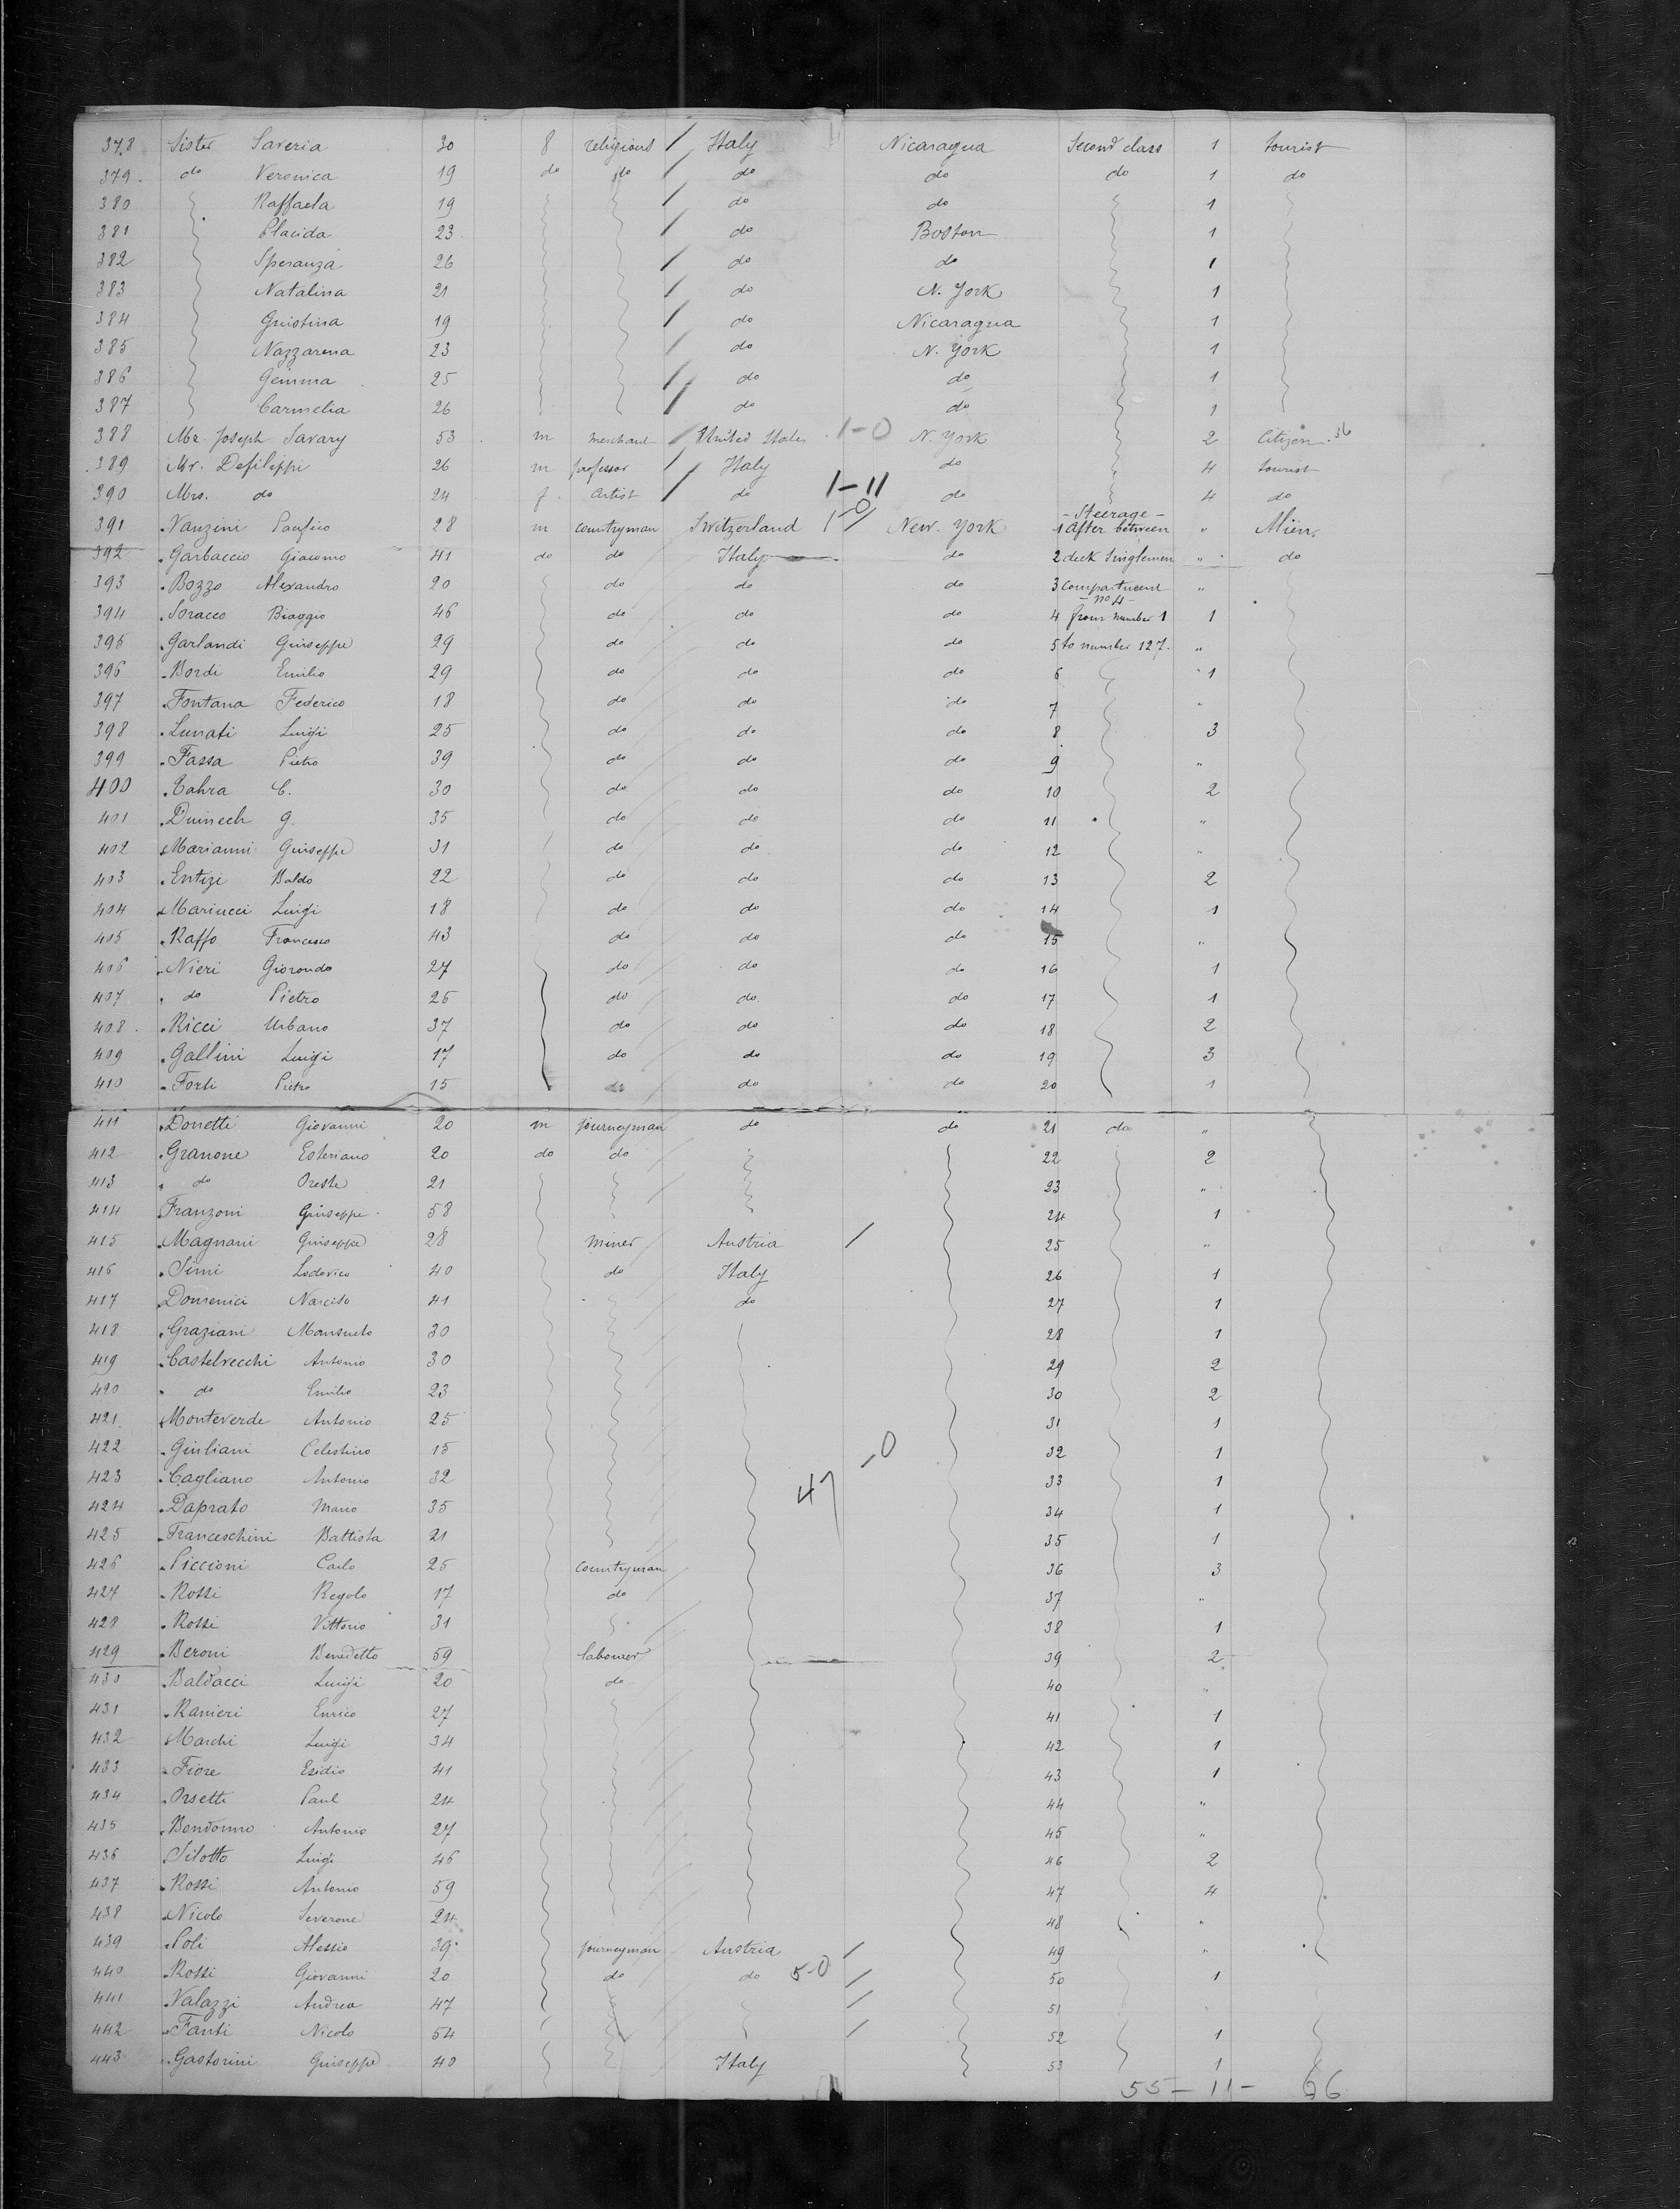 378 Sister Saveria 30 f religious / Italy Nicaragua Second class 1 tourist
379 do Veronica 19 do do / do do do 1 do
380 Raffaela 19 / do do 1
381 Placida 23 / do Boston 1
382 Speranza 26 / do do 1
383 Natalina 21 / do N. York 1
384 Giustina 19 / do Nicaragua 1
385 Nazzarena 23 / do N. York 1
386 Gemma 25 / do do 1
387 Carmelia 26 / do do 1
388 Mr. Joseph Savary 53 m merchant / United States 1-0 N. York 2 Citizen 36
389 Mr. Defilippi 26 m professor / Italy do 4 tourist
390 Mrs. do 24 f. artist / do 1-11 do 4 do
- Steerage -
391 Vanzini Paufico 28 m countryman Switzerland 1-0 / New. York 1 After between " Alïen.
392 Garbaccio Giacomo 41 do do Italy do 2 deck Singlemen " do
393 Bozzo Alexandro 20 do do do 3 compartment "
- no 4 -
394 Soracco Biaggio 46 do do do 4 from number 1 1
395 Garlandi Guiseppe 29 do do do 5 to number 127. "
396 Bordi Emilio 29 do do do 6 1
397 Fontana Federico 18 do do do 7 "
398 Lunati Luigi 25 do do do 8 3
399 Fassa Pietro 39 do do do 9 "
400 Zahra C. 30 do do do 10 2
401 Dumech G. 35 do do do 11 "
402 Marianni Guiseppe 31 do do do 12 "
403 Entizi Baldo 22 do do do 13 2
404 Mariucci Luigi 18 do do do 14 1
405 Raffo Francesco 43 do do do 15 "
406 Nieri Giorondo 27 do do do 16 1
407 do Pietro 25 do do. do 17 1
408 Ricci Urbano 37 do do do 18 2
409 Gallini Luigi 17 do do do 19 3
410 Forti Pietro 15 do do do 20 1
411 Donetti Giovanni 20 m journeyman do do 21 do "
412 Granone Esteriano 20 do do 22 2
413 do Oreste 21 23 "
414 Franzoni Giuseppe 58 24 1
415 Magnani Guiseppe 28 miner Austria / 25 "
416 Simi Lodovico 40 do Italy 26 1
417 Domenici Narciso 41 do 27 1
418 Graziani Mansueto 30 28 1
419 Castelvecchi Antonio 30 29 2
420 do Emilio 23 30 2
421 Monteverde Antonio 25 31 1
422 Giuliani Celestino 15 -0 32 1
423 Cagliano Antonio 32 47 33 1
424 Daprato Mario 35 34 1
425 Franceschini Battista 21 35 1
426 Piccioni Carlo 25 countryman 36 3
427 Rossi Regolo 17 do 37 "
428 Rossi Vittorio 31 38 1
429 Beroni Benedetto 59 labourer 39 2
430 Baldacci Luigi 20 do 40 "
431 Ranieri Enrico 27 41 1
432 Marchi Luigi 34 42 1
433 Fiore Esidio 41 43 1
434 Orsetti Paul 24 44 "
435 Bondonno Antonio 27 45 "
436 Silotto Luigi 46 46 2
437 Rossi Antonio 59 47 4
438 Nicolo Severone 24 48 "
439 Poli Alessio 39 journeyman Austria / 49 "
440 Rossi Giovanni 20 do do 5-0 / 50 1
441 Valazzi Andrea 47 / 51 "
442 Fanti Nicolo 54 / 52 1
443 Gastorini Guiseppe 40 Italy 53 1
55 - 11 - 66